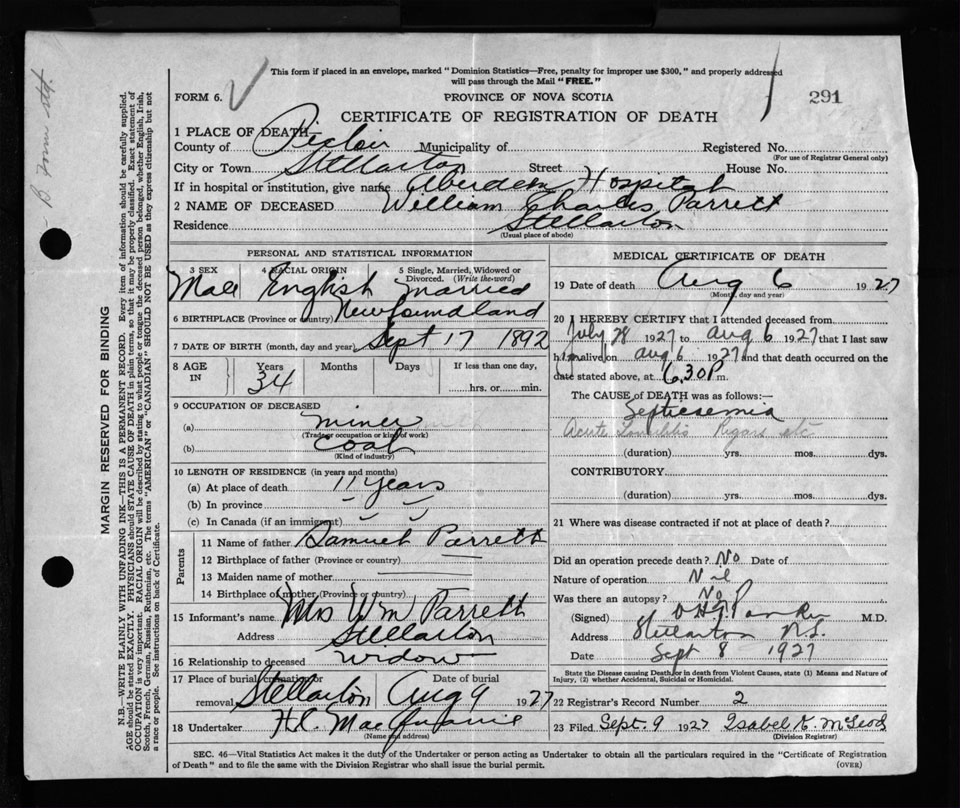 This form if placed in an envelope, marked "Dominion Statistics—Free, penalty for improper use $300," and properly addressed
will pass through the Mail "FREE."
FORM 6.
PROVINCE OF NOVA SCOTIA
291
CERTIFICATE OF REGISTRATION OF DEATH
1 PLACE OF DEATH—
County of Pictou Municipality of Registered No.
(For use of Registrar General only)
City or Town Stellarton Street House No.
If in hospital or institution, give name Aberdeen Hospital
2 NAME OF DECEASED William Charles Parrett
Residence Stellarton
(Usual place of abode)
PERSONAL AND STATISTICAL INFORMATION
3 SEX 4 RACIAL ORIGIN 5 Single, Married, Widowed or Divorced. (Write the word)
Male English Married
6 BIRTHPLACE (Province or country) Newfoundland
7 DATE OF BIRTH (month, day and year) Sept 17 1892
8 AGE IN Years Months Days If less than one day,
34 hrs. or min.
9 OCCUPATION OF DECEASED
(a) miner
(Trade or occupation or kind of work)
(b) Coal
(Kind of industry)
10 LENGTH OF RESIDENCE (in years and months)
(a) At place of death 11 years
(b) In province
(c) In Canada (if an immigrant)
Parents
11 Name of father Samuel Parrett
12 Birthplace of father (Province or country)
13 Maiden name of mother
14 Birthplace of mother (Province or Country)
15 Informant's name Mrs Wm Parrett
Address Stellarton
16 Relationship to deceased widow
17 Place of burial, cremation or removal Stellarton Date of burial Aug 9 1927
18 Undertaker H.C.
(Name and address)
MEDICAL CERTIFICATE OF DEATH
19 Date of death Aug 6 1927
(Month, day and year)
20 I HEREBY CERTIFY that I attended deceased from
July 28 1927 to Aug 6 1927 that I last saw
him alive on Aug 6 1927 and that death occurred on the
date stated above, at 6.30 P. m.
The CAUSE of DEATH was as follows:—
Septicaemia
Acute etc
(duration) yrs. mos. dys.
CONTRIBUTORY
(duration) yrs. mos. dys.
21 Where was disease contracted if not at place of death?
Did an operation precede death? No Date of
Nature of operation Nil
Was there an autopsy? No
(Signed) M.D.
Address Stellarton N.S.
Date Sept 8 1927
State the Disease causing Death, or in death from Violent Causes, state (1) Means and Nature of
Injury, (2) whether Accidental, Suicidal or Homicidal.
22 Registrar's Record Number 2
23 Filed Sept. 9 1927 Isabel K. McLeod
(Division Registrar)
SEC. 46—Vital Statistics Act makes it the duty of the Undertaker or person acting as Undertaker to obtain all the particulars required in the "Certificate of Registration
of Death" and to file the same with the Division Registrar who shall issue the burial permit. (OVER)
MARGIN RESERVED FOR BINDING
N.B.—WRITE PLAINLY WITH UNFADING INK—THIS IS A PERMANENT RECORD. Every item of information should be carefully supplied.
AGE should be stated EXACTLY. PHYSICIANS should STATE CAUSE OF DEATH in plain terms, so that it may be properly classified. Exact statement of
OCCUPATION is very important. RACIAL ORIGIN will be described by stating to what people or tongue the deceased person belonged, whether English, Irish,
Scotch, French, German, Russian, Ruthenian, etc. The terms "AMERICAN" or "CANADIAN" SHOULD NOT BE USED as they express citizenship but not
a race or people. See instructions on back of Certificate.